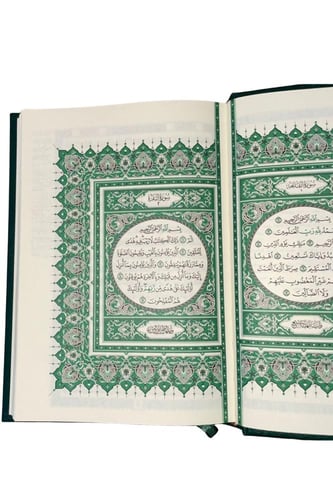 سُورَةُ الفَاتِحَةِ
بِسْمِ ٱللَّهِ ٱلرَّحْمَٰنِ ٱلرَّحِيمِ ١
لِلَّهِ رَبِّ ٱلْعَٰلَمِينَ ٢
ٱلرَّحِيمِ ٣ مَٰلِكِ يَوْمِ ٱلدِّينِ ٤
وَإِيَّاكَ نَسْتَعِينُ ٥ ٱهْدِنَا
ٱلْمُسْتَقِيمَ ٦ صِرَٰطَ ٱلَّذِينَ
غَيْرِ ٱلْمَغْضُوبِ عَلَيْهِمْ
وَلَا ٱلضَّآلِّينَ ٧
سُورَةُ البَقَرَةِ
بِسْمِ ٱللَّهِ ٱلرَّحْمَٰنِ ٱلرَّحِيمِ
الٓمٓ ١ ذَٰلِكَ ٱلْكِتَٰبُ لَا رَيْبَ ۛ فِيهِ ۛ هُدًى
لِّلْمُتَّقِينَ ٢ ٱلَّذِينَ يُؤْمِنُونَ بِٱلْغَيْبِ وَيُقِيمُونَ ٱلصَّلَوٰةَ
وَمِمَّا رَزَقْنَٰهُمْ يُنفِقُونَ ٣ وَٱلَّذِينَ يُؤْمِنُونَ بِمَآ أُنزِلَ
إِلَيْكَ وَمَآ أُنزِلَ مِن قَبْلِكَ وَبِٱلْأَخِرَةِ هُمْ يُوقِنُونَ ٤
أُو۟لَٰٓئِكَ عَلَىٰ هُدًى مِّن رَّبِّهِمْ وَأُو۟لَٰٓئِكَ
هُمُ ٱلْمُفْلِحُونَ ٥